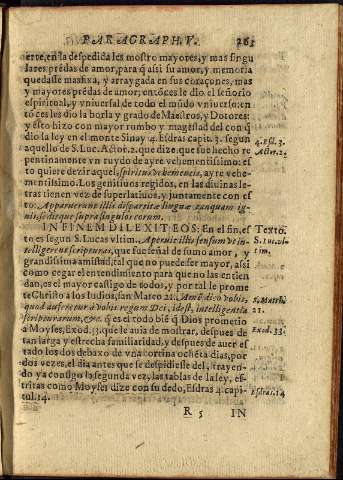 PARAGRAPH. V. 263
erte, en la despedida les mostro mayores, y mas singu
lares prẽdas de amor, para q̃ assi su amor, y memoria
quedasse mas fixa, y arraygada en sus coraçones, mas
y mayores prẽdas de amor; entõces le dio el señorio
espiritual, y vniuersal, de todo el mũdo vniuerso: en
tõces les dio la borla y grado de Maestros, y Dotores:
y esto hizo con mayor rumbo y magestad del con q̃
dio la ley en el monte Sinay 4. Esdras capit. 3. segun
4. Esd. 3.
aquello de S. Luc. Actor. 2. que dize, que fue hecho re
Actor. 2.
pentinamente vn ruydo de ayre vehementissimo: es
to quiere dezir aquel, spiritus vehementis, ayre vehe-
mentissimo. Los genitiuos regidos, en las diuinas le-
tras tienen vez de superlatiuos, y juntamente con es
to: Apparuerunt illis dispartitæ linguæ tanquam ig-
nis, seditque supra singulos eorum.
IN FINEM DILEXIT EOS. En el fin, es
Texto.
to es segun S. Lucas vltim. Aperuit illis sensum vt in-
S. Luc. vl-
telligerent scripturas, que fue señal de sumo amor, y
tim.
grandissima amistad, tal que no puede ser mayor, assi
como cegar el entendimiento para que no las entien
dan, es el mayor castigo de todos, y por tal le prome
te Christo a los Iudios, san Marco 21. Amẽ dico vobis,
S. Matth.
quod auferetur à vobis regnum Dei, idest, intelligentia
21.
scripturarum, &c. q̃ es el todo biẽ q̃ Dios prometio
a Moyses, Exod. 33. que le auia de mostrar, despues de
Exod. 33.
tan larga y estrecha familiaridad, y despues de auer es
tado los dos debaxo de vna cortina ochẽta dias, por
dos vezes, el dia antes que se despidiesse del, trayen-
do ya consigo la segunda vez, las tablas de la ley, es-
critas como Moyses dize con su dedo, Esdras 4. capi-
Esdras. 14
tul. 14.
R 5 IN